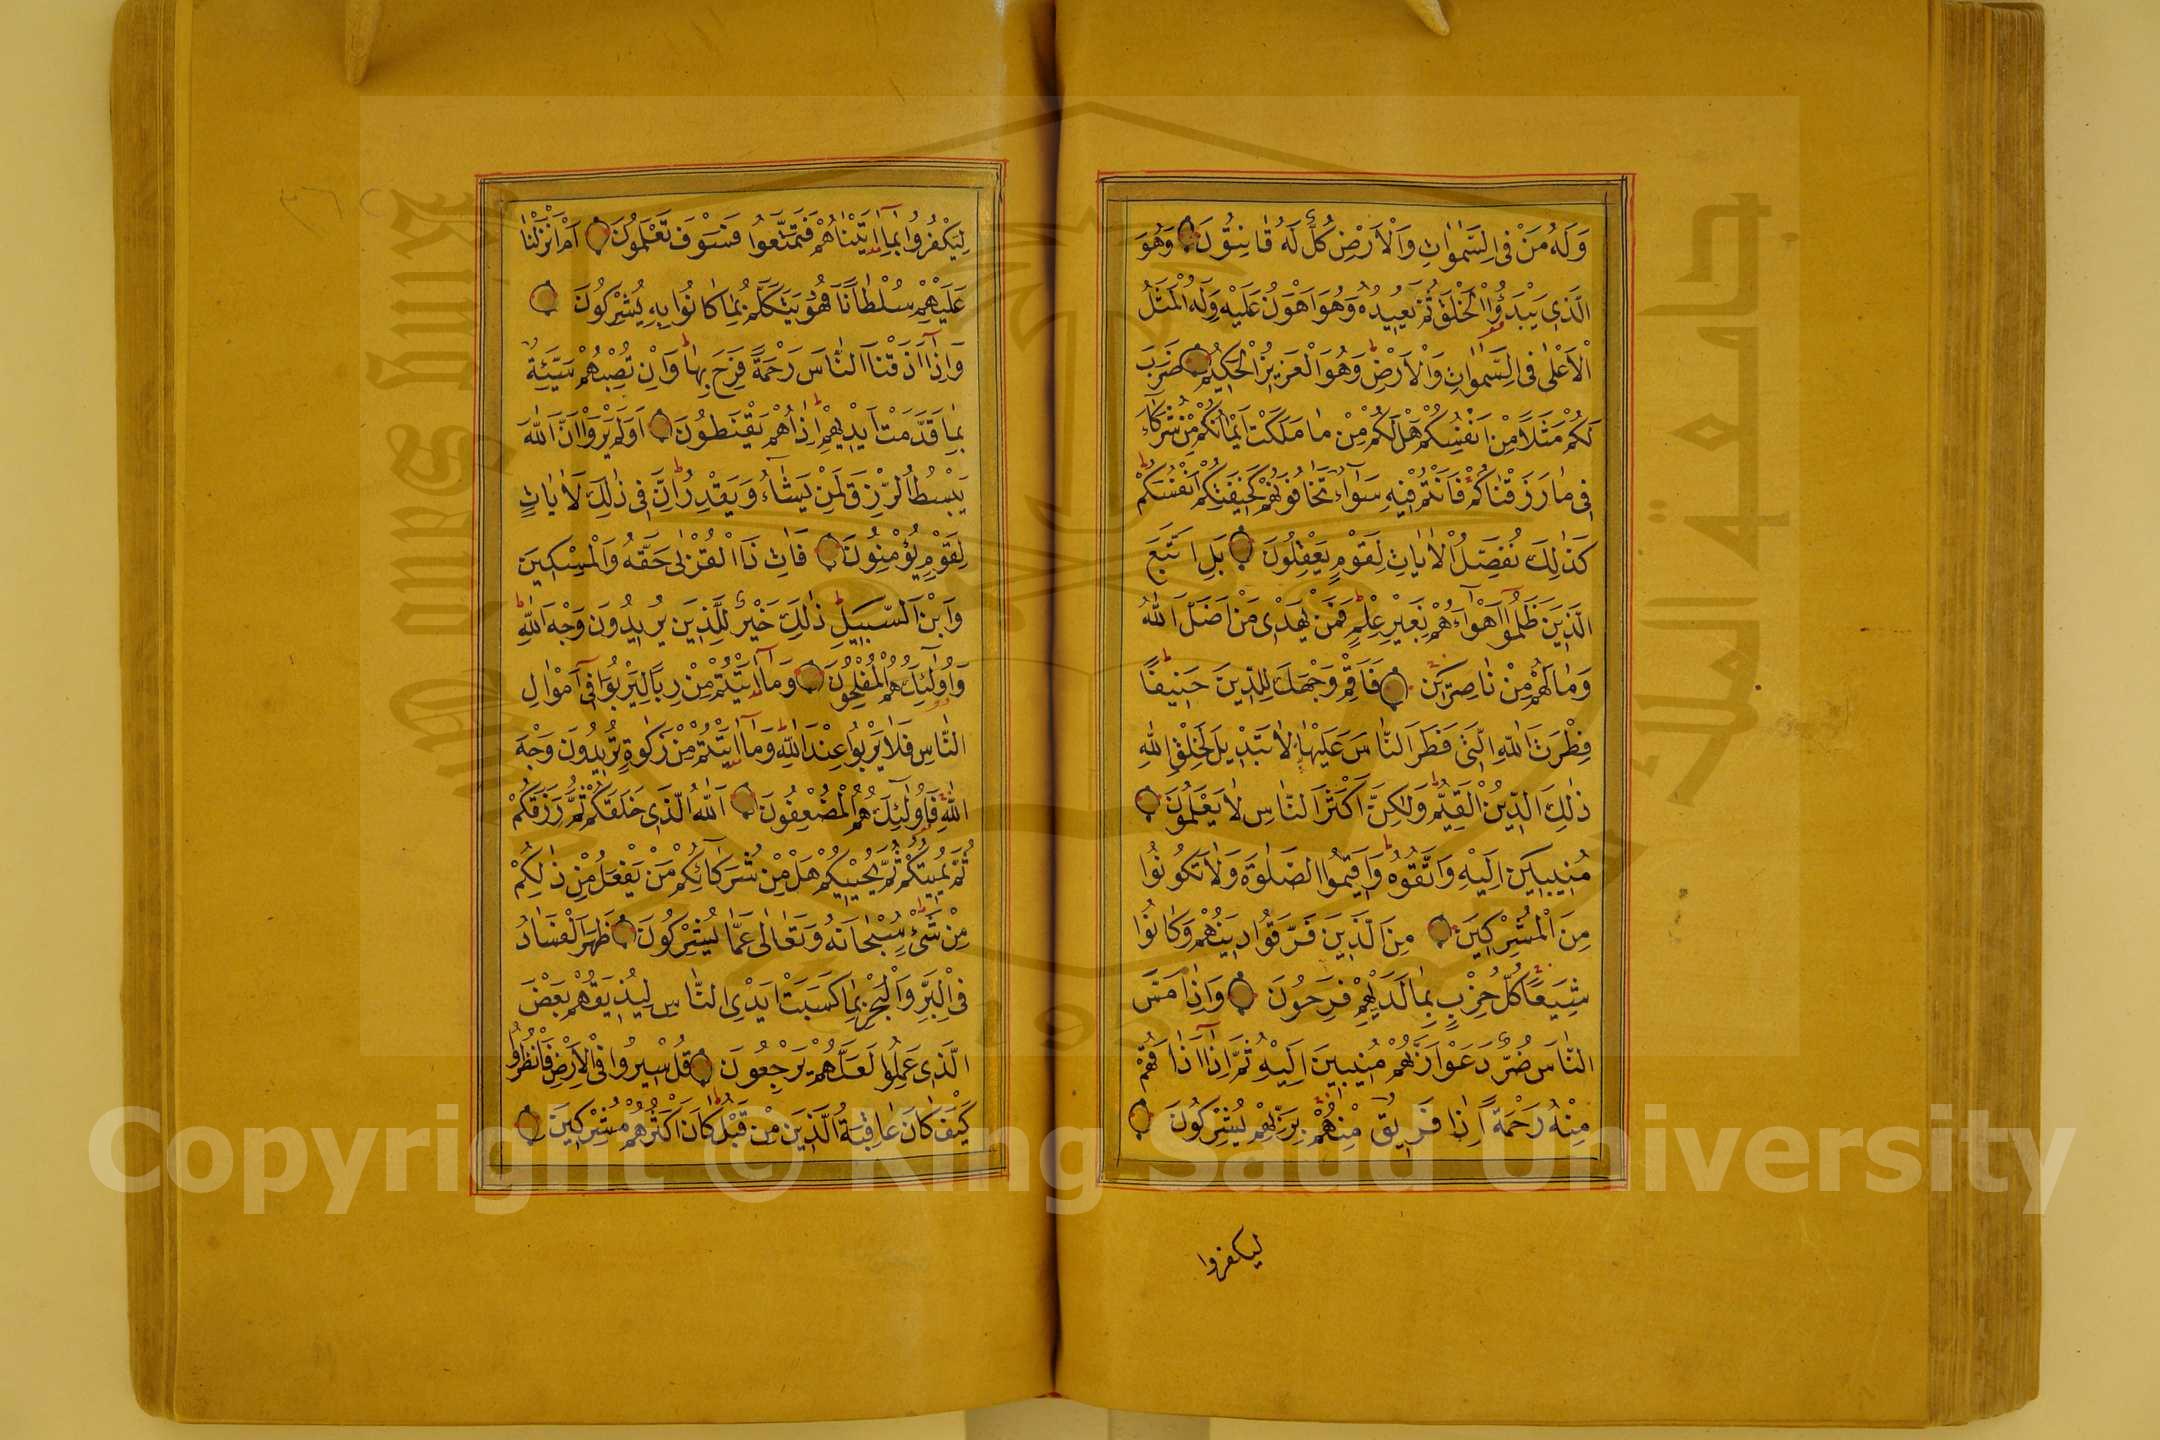 وَلَهُ مَنْ فِي السَّمٰوَاتِ وَالْاَرْضِ كُلٌّ لَهُ قَانِتُونَ وَهُوَ
الَّذِي يَبْدَؤُا الْخَلْقَ ثُمَّ يُعِيدُهُ وَهُوَ اَهْوَنُ عَلَيْهِ وَلَهُ الْمَثَلُ
الْاَعْلٰى فِي السَّمٰوَاتِ وَالْاَرْضِ وَهُوَ الْعَزِيزُ الْحَكِيمُ ضَرَبَ
لَكُمْ مَثَلًا مِنْ اَنْفُسِكُمْ هَلْ لَكُمْ مِنْ مَا مَلَكَتْ اَيْمَانُكُمْ مِنْ شُرَكَاءَ
فِي مَا رَزَقْنَاكُمْ فَاَنْتُمْ فِيهِ سَوَاءٌ تَخَافُونَهُمْ كَخِيفَتِكُمْ اَنْفُسَكُمْ
كَذٰلِكَ نُفَصِّلُ الْاٰيَاتِ لِقَوْمٍ يَعْقِلُونَ بَلِ اتَّبَعَ
الَّذِينَ ظَلَمُوا اَهْوَاءَهُمْ بِغَيْرِ عِلْمٍ فَمَنْ يَهْدِي مَنْ اَضَلَّ اللّٰهُ
وَمَا لَهُمْ مِنْ نَاصِرِينَ فَاَقِمْ وَجْهَكَ لِلدِّينِ حَنِيفًا
فِطْرَتَ اللّٰهِ الَّتِي فَطَرَ النَّاسَ عَلَيْهَا لَا تَبْدِيلَ لِخَلْقِ اللّٰهِ
ذٰلِكَ الدِّينُ الْقَيِّمُ وَلٰكِنَّ اَكْثَرَ النَّاسِ لَا يَعْلَمُونَ
مُنِيبِينَ اِلَيْهِ وَاتَّقُوهُ وَاَقِيمُوا الصَّلٰوةَ وَلَا تَكُونُوا
مِنَ الْمُشْرِكِينَ مِنَ الَّذِينَ فَرَّقُوا دِينَهُمْ وَكَانُوا
شِيَعًا كُلُّ حِزْبٍ بِمَا لَدَيْهِمْ فَرِحُونَ وَاِذَا مَسَّ
النَّاسَ ضُرٌّ دَعَوْا رَبَّهُمْ مُنِيبِينَ اِلَيْهِ ثُمَّ اِذَا اَذَاقَهُمْ
مِنْهُ رَحْمَةً اِذَا فَرِيقٌ مِنْهُمْ بِرَبِّهِمْ يُشْرِكُونَ
ليكفروا
لِيَكْفُرُوا بِمَا اٰتَيْنَاهُمْ فَتَمَتَّعُوا فَسَوْفَ تَعْلَمُونَ اَمْ اَنْزَلْنَا
عَلَيْهِمْ سُلْطَانًا فَهُوَ يَتَكَلَّمُ بِمَا كَانُوا بِهِ يُشْرِكُونَ
وَاِذَا اَذَقْنَا النَّاسَ رَحْمَةً فَرِحَ بِهَا وَاِنْ تُصِبْهُمْ سَيِّئَةٌ
بِمَا قَدَّمَتْ اَيْدِيهِمْ اِذَا هُمْ يَقْنَطُونَ اَوَلَمْ يَرَوْا اَنَّ اللّٰهَ
يَبْسُطُ الرِّزْقَ لِمَنْ يَشَاءُ وَيَقْدِرُ اِنَّ فِي ذٰلِكَ لَاٰيَاتٍ
لِقَوْمٍ يُؤْمِنُونَ فَاٰتِ ذَا الْقُرْبٰى حَقَّهُ وَالْمِسْكِينَ
وَابْنَ السَّبِيلِ ذٰلِكَ خَيْرٌ لِلَّذِينَ يُرِيدُونَ وَجْهَ اللّٰهِ
وَاُولٰئِكَ هُمُ الْمُفْلِحُونَ وَمَا اٰتَيْتُمْ مِنْ رِبًا لِيَرْبُوَا فِي اَمْوَالِ
النَّاسِ فَلَا يَرْبُوا عِنْدَ اللّٰهِ وَمَا اٰتَيْتُمْ مِنْ زَكٰوةٍ تُرِيدُونَ وَجْهَ
اللّٰهِ فَاُولٰئِكَ هُمُ الْمُضْعِفُونَ اَللّٰهُ الَّذِي خَلَقَكُمْ ثُمَّ رَزَقَكُمْ
ثُمَّ يُمِيتُكُمْ ثُمَّ يُحْيِيكُمْ هَلْ مِنْ شُرَكَائِكُمْ مَنْ يَفْعَلُ مِنْ ذٰلِكُمْ
مِنْ شَيْءٍ سُبْحَانَهُ وَتَعَالٰى عَمَّا يُشْرِكُونَ ظَهَرَ الْفَسَادُ
فِي الْبَرِّ وَالْبَحْرِ بِمَا كَسَبَتْ اَيْدِي النَّاسِ لِيُذِيقَهُمْ بَعْضَ
الَّذِي عَمِلُوا لَعَلَّهُمْ يَرْجِعُونَ قُلْ سِيرُوا فِي الْاَرْضِ فَانْظُرُوا
كَيْفَ كَانَ عَاقِبَةُ الَّذِينَ مِنْ قَبْلُ كَانَ اَكْثَرُهُمْ مُشْرِكِينَ
King Saud University
جامعة الملك
1957
Copyright © King Saud University